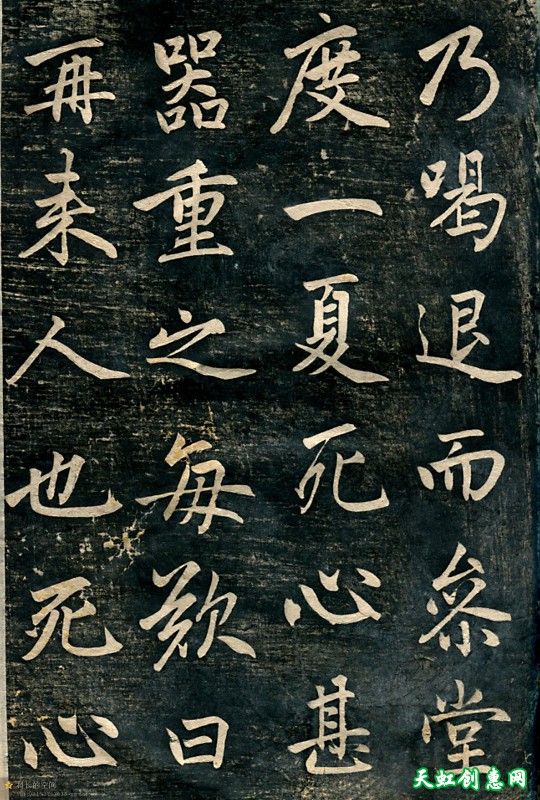 乃喝退而參堂
度一夏死心甚
器重之每歎曰
再来人也死心
天虹创惠网